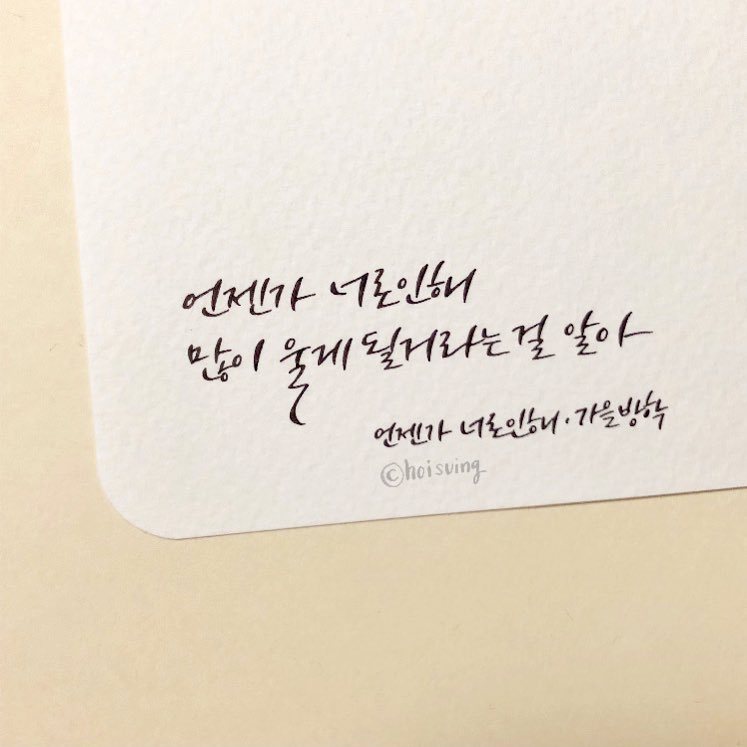 언젠가 너로인해
많이 울게 될거라는걸 알아
언젠가 너로인해 · 가을방학
©hoisuing